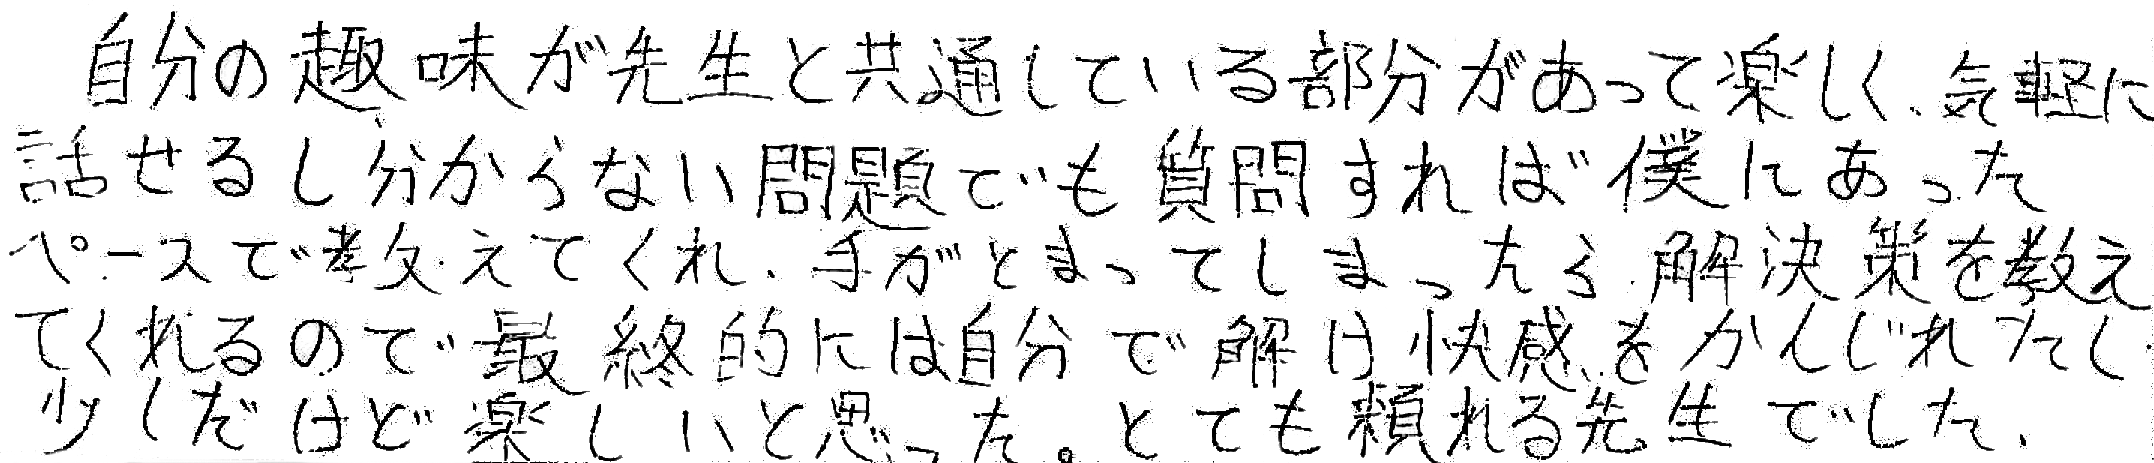 自分の趣味が先生と共通している部分があって楽しく、気軽に
話せるし分からない問題でも質問すれば僕にあった
ペースで教えてくれ、手がとまってしまったら解決策を教え
てくれるので最終的には自分で解け快感をかんじれたし
少しだけど楽しいと思った。とても頼れる先生でした。